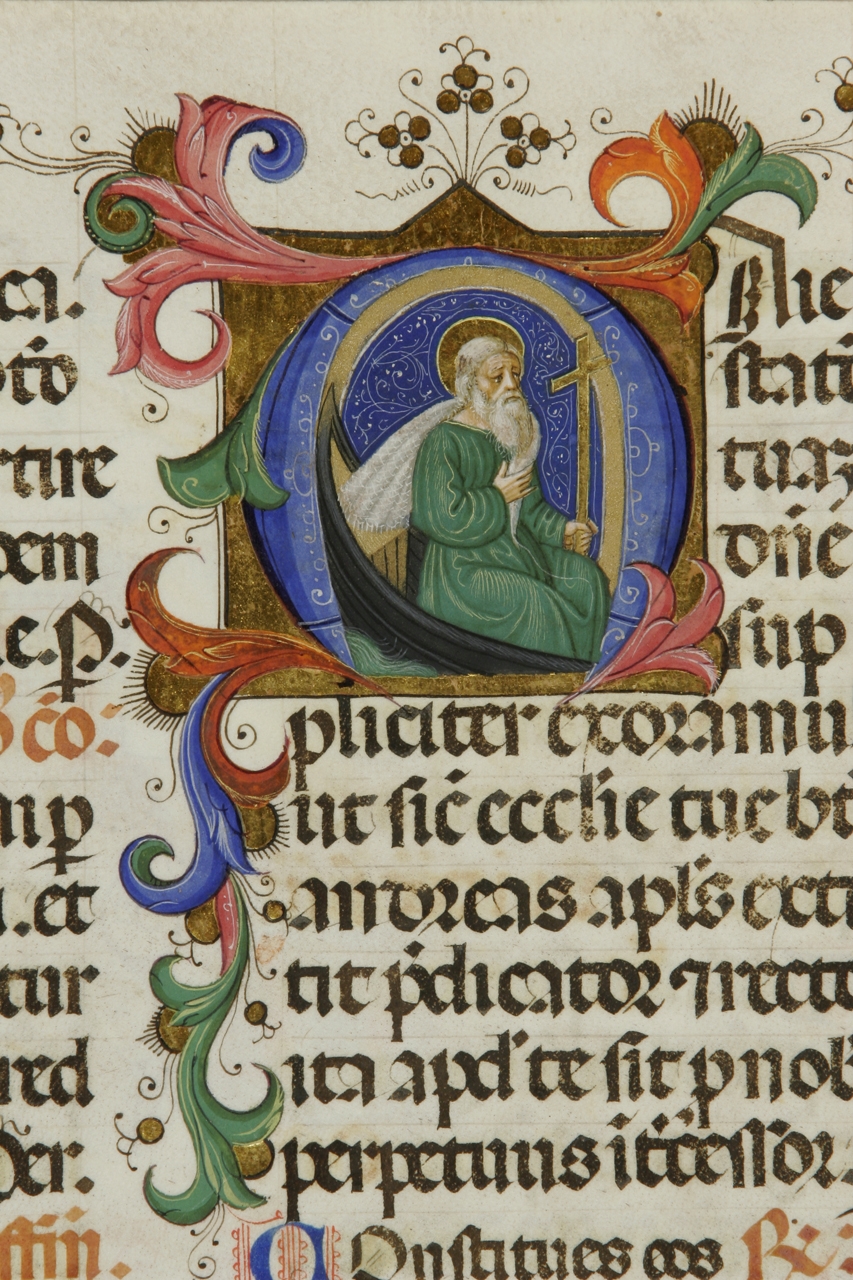 ca.
otō
rtire
dem
e. p.
cō:
up
. et
tur
red
der.
ffm.
Maie
statē
tuaz
dn̄e
sup
pliciter exoramu
ut sic̄ ecclīe tue bt
andreas apl's exti
tit p̄dicator ⁊ recto
ita apd' te sit p nob
perpetuus it̄cessor.
Constitues eos